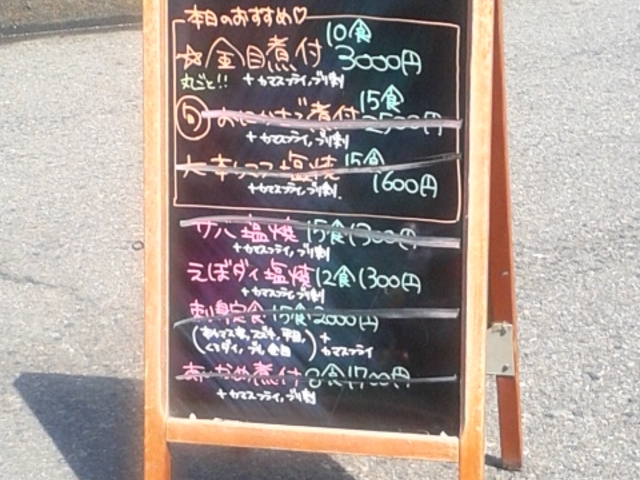 本日のおすすめ♡
☆金目煮付 10食 3000円
丸ごと!! +カマスフライ,ブリ刺
旬 おにかさご煮付 15食 2500円
+カマスフライ,ブリ刺
塩焼 15食 1600円
+カマスフライ,ブリ刺.
サバ塩焼 15食 1300円
+カマスフライ,ブリ刺
えぼダイ塩焼 12食 1300円
+カマスフライ,ブリ刺
刺身定食 15食 2000円
+カマスフライ
煮付 8食 1700円
+カマスフライ,ブリ刺